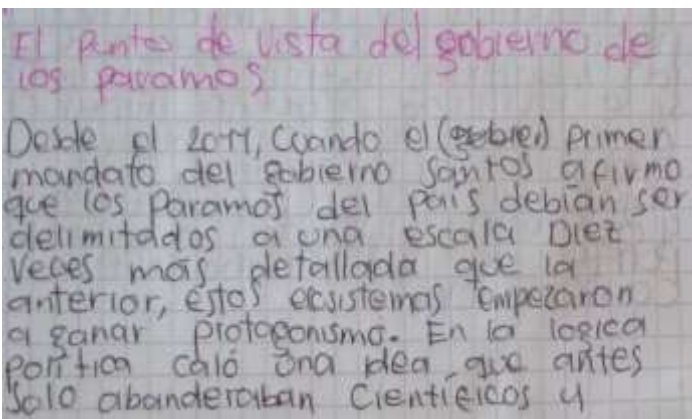 El Punto de vista del gobierno de
los paramos
Desde el 2011, Cuando el (gobier) primer
mandato del gobierno Santos afirmo
que los Paramos del País debían ser
delimitados a una escala Diez
Veces más detallada que la
anterior, estos ecsistemas empezaron
a ganar protagonismo. En la logica
Política caló una idea que antes
Solo abanderaban Científicos y